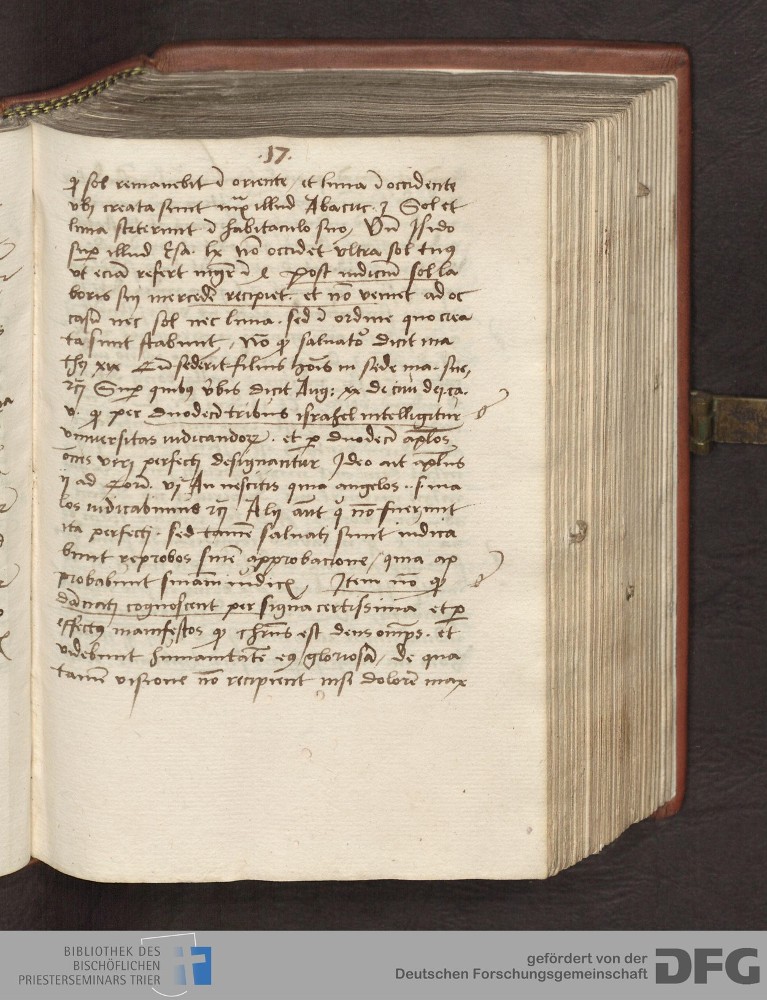 .17.
sol remanebit oriente / et luna occidente
ubi creata sunt illud Abacuc. Sol et
luna steterunt habitaculo suo, Isido
sup illud Esa. lx no occidet ultra sol tuus
ut ecia refert post iudiciu sol la
boris sui mercede recipiet. et no veniet ad oc
casu nec sol nec luna. sed ordine quo crea
ta sunt stabunt / dicit ma
xix sederit filius in sede ma. sue,
Sup quibus dicit Aug: xx de ciui dei. ca.
v. per duodeci tribus israhel intelligitur
universitas iudicandorum. et duodeci aplos
oms viri perfecti designantur Ideo ait aplus
ii ad Corin. vi An nescitis quia angelos. s. ma
los iudicabimus Alii aut no fuerunt
ita perfecti. sed tamen salvati sunt iudica
bunt reprobos approbacione / quia ap
probabunt iudicis Item no
damnati cognoscent per signa certissima et
effectus manifestos est deus omps. et
videbunt humanitate eius gloriosa / de qua
tamen visione no recipient nisi dolore max
BIBLIOTHEK DES
BISCHÖFLICHEN
PRIESTERSEMINARS TRIER
gefördert von der
Deutschen Forschungsgemeinschaft
DFG